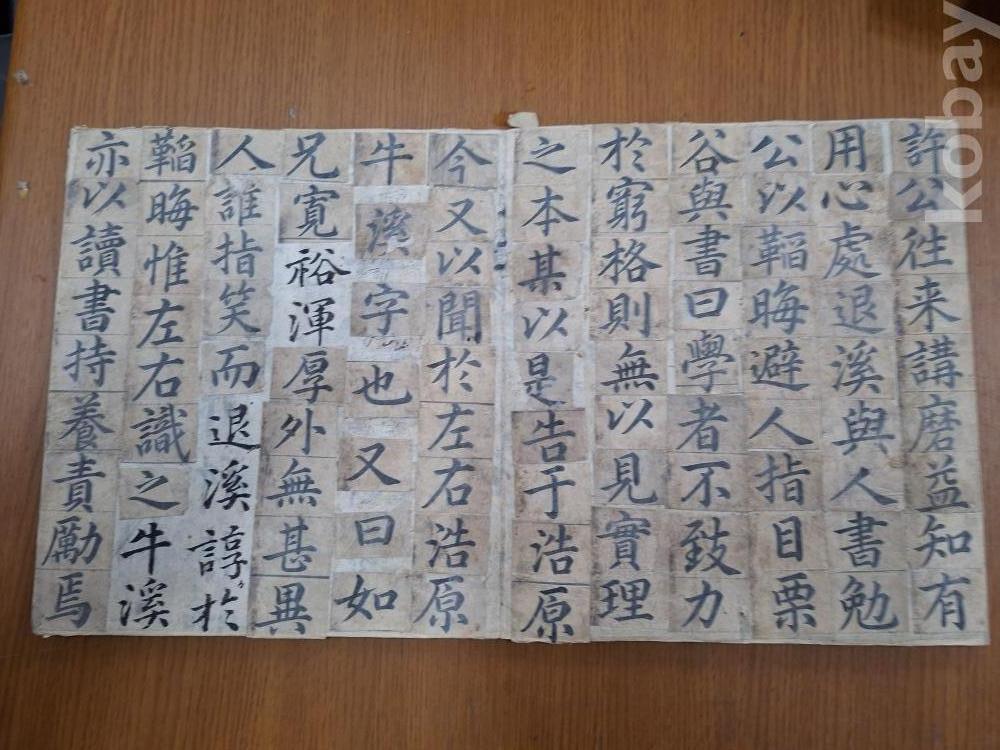 許公往来講磨益知有
用心處退溪與人書勉
公以韜晦避人指目栗
谷與書曰學者不致力
於窮格則無以見實理
之本某以是告于浩原
今又以聞於左右浩原
牛溪字也又曰如
兄寬裕渾厚外無甚異
人誰指笑而退溪諄於
韜晦惟左右識之牛溪
亦以讀書持養責勵焉
kobay